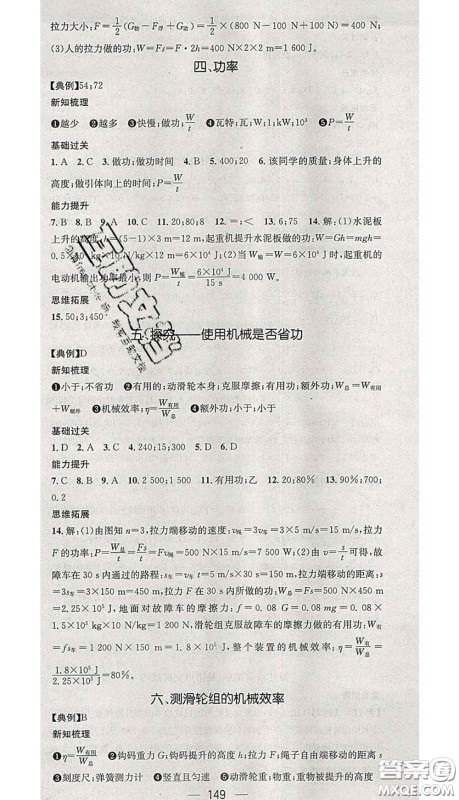 拉力大小:F=1/2(G物-F浮+G动)=1/2×(800 N-100 N+100 N)=400 N;
(3)人的拉力做功:W=Fs=F·2h=400 N×2×2 m=1 600 J.
四、功率
【典例】54;72
新知梳理
❶越少 ❷越多 ❸快慢;做功;W/t ❹瓦特;瓦;W;1;kW;10³ ❺P=W/t
基础过关
1. A 2. C 3. 做功;做功时间 4. B 5. 400;20 6. 该同学的质量;身体上升的
高度;做引体向上的时间;P=W/t
能力提升
7. B 8. B 9. A 10. C 11. 20;80;8 12. =;< 13. 6;75 14. 解:水泥板
上升的高度,h=(5-1)×3 m=12 m,起重机提升水泥板做的功:W=Gh=mgh=
0.5×10³ kg×10 N/kg×12 m=6×10⁴ J,当W输=W=6×10⁴ J时,起重机的
电动机输出功率最小,则P=W输/t=6×10⁴ J/15 s=4 000 W.
思维拓展
15. 50;3;450
五、探究——使用机械是否省功
【典例】D
新知梳理
❶小于;不省功 ❷有用的;动滑轮本身;克服摩擦;有用功;额外功;W总=W有用
+W额外 ❸机械效率;η=W有用/W总 ❹额外功;小于;小于
基础过关
1. D 2. A 3. C 4. 240;15;300 5. D 6. D
能力提升
7. C 8. C 9. B 10. 2 500;1 500 11. 有用功;乙 12. 20;80% 13. 90%;700;
0.2
思维拓展
14. 解:(1)由图知n=3,拉力端移动的速度:v绳=3v车=3×5 m/s=15 m/s,拉力
F的功率:P=W总/t=Fs/t=Fv绳=500 N×15 m/s=7 500 W;(2)由v=s/t可得,故
障车在30 s内通过的路程:s车=v车t=5 m/s×30 s=150 m,拉力端移动的距离:s
=3s车=3×150 m=450 m,拉力F在30 s内所做的功:W总=Fs=500 N×450 m
=2.25×10⁵ J,地面对故障车的摩擦力:f=0.08 G=0.08 mg=0.08×
1.5×10³ kg×10 N/kg=1 200 N,滑轮组克服故障车的摩擦力做的有用功:W有用
=fs车=1 200 N×150 m=1.8×10⁵ J,整个装置的机械效率:η=W有用/W总=
1.8×10⁵ J/2.25×10⁵ J=80%.
六、测滑轮组的机械效率
【典例】B
新知梳理
❶η=W有用/W总 ❷钩码重力G;钩码提升的高度h;拉力F;绳子自由端移动的距离s
❸刻度尺;弹簧测力计 ❹竖直且匀速 ❺动滑轮;物重;重物被提升的高度
149
答案圈
MXQE.COM